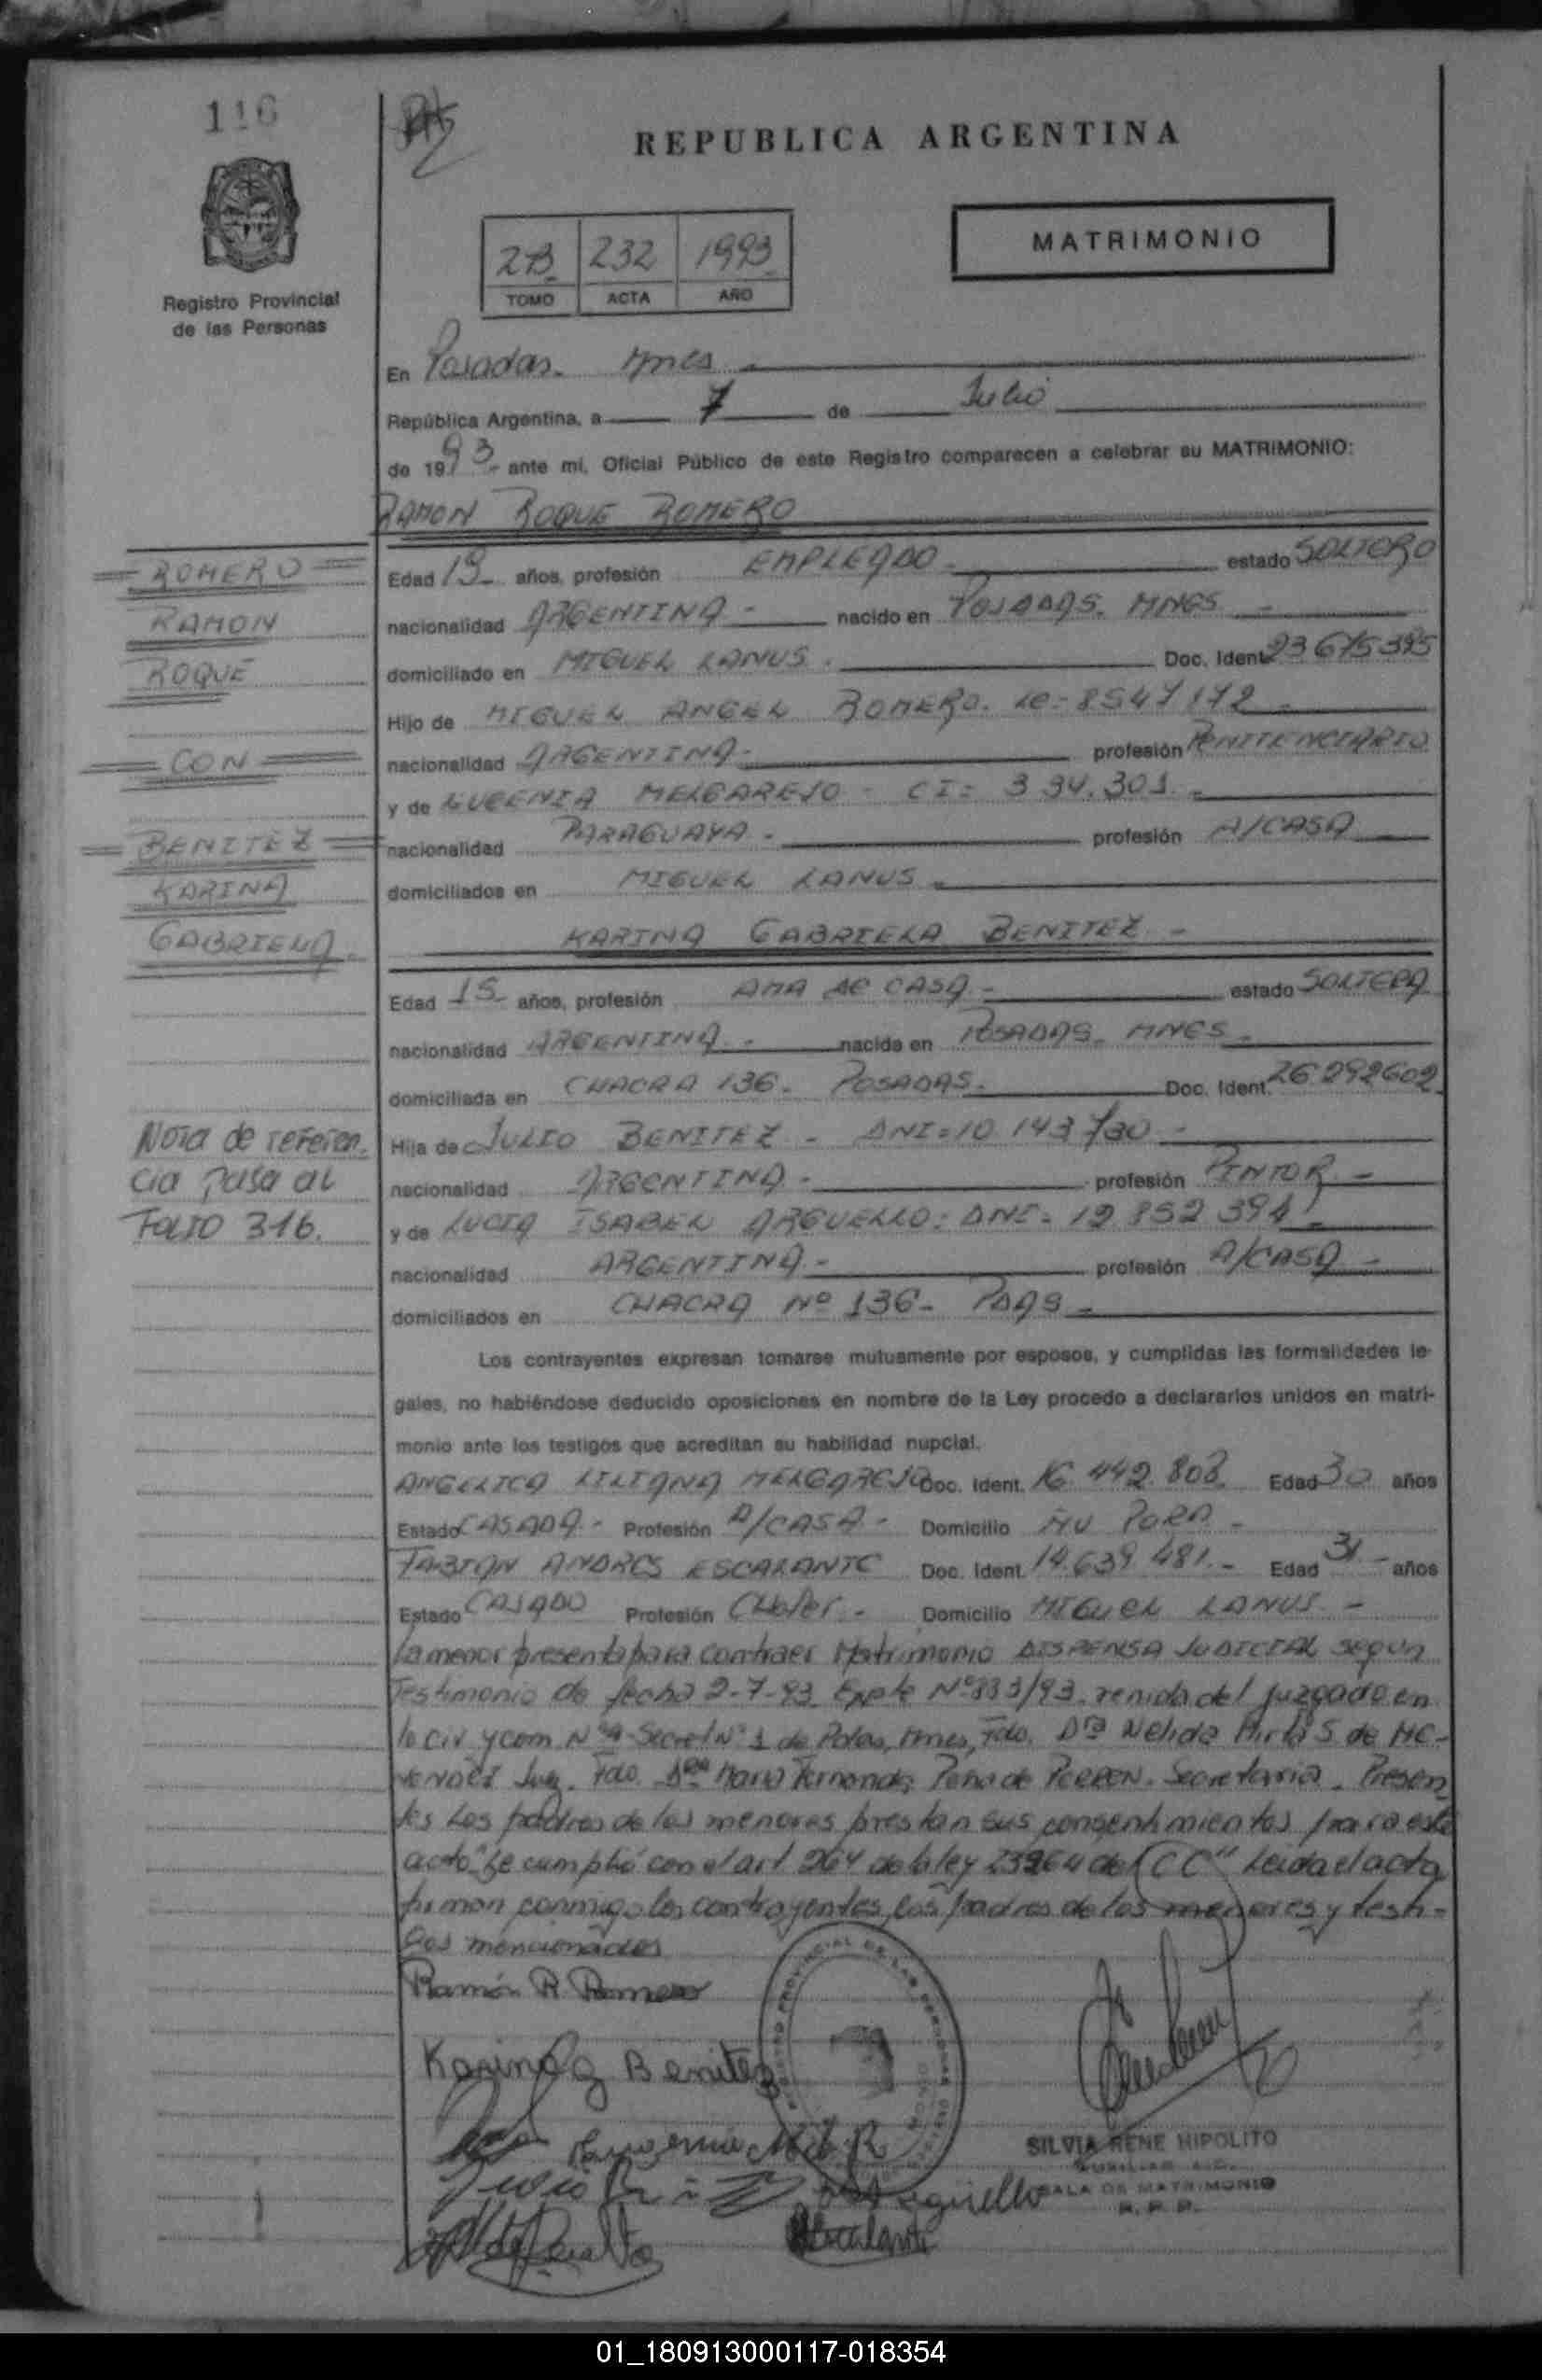 116
REPUBLICA ARGENTINA
MATRIMONIO
273 232 1993
TOMO ACTA AÑO
Registro Provincial
de las Personas
En Posadas. Mnes
República Argentina, a 7 de Julio
de 1993- ante mí, Oficial Público de este Registro comparecen a celebrar su MATRIMONIO:
RAMON ROQUE ROMERO
ROMERO
RAMON
ROQUE
CON
BENITEZ
KARINA
GABRIELA
Edad 19 años, profesión EMPLEADO - estado SOLTERO
nacionalidad ARGENTINA - nacido en POSADAS. MNES -
domiciliado en MIGUEL LANUS. Doc. Ident. 23675395
Hijo de MIGUEL ANGEL ROMERO. LE= 8547172 -
nacionalidad ARGENTINA- profesión PENITENCIARIO
y de EUGENIA MELGAREJO - CI= 334.301.-
nacionalidad PARAGUAYA - profesión A/CASA
domiciliados en MIGUEL LANUS -
KARINA GABRIELA BENITEZ -
Edad 15 años, profesión AMA DE CASA.- estado SOLTERA
nacionalidad ARGENTINA - nacida en POSADAS- MNES -
domiciliada en CHACRA 136- POSADAS. Doc. Ident. 26292602
Hija de JULIO BENITEZ - DNI=10 143 730 -
nacionalidad ARGENTINA - profesión PINTOR -
y de LUCIA ISABEL ARGUELLO: DNI= 12 852 394!
nacionalidad ARGENTINA - profesión A/CASA -
domiciliados en CHACRA Nº 136- PDAS -
Nota de referen-
cia pasa al
FOLIO 316.
Los contrayentes expresan tomarse mutuamente por esposos, y cumplidas las formalidades le-
gales, no habiéndose deducido oposiciones en nombre de la Ley procedo a declararlos unidos en matri-
monio ante los testigos que acreditan su habilidad nupcial.
ANGELICA LILIANA MELGAREJO Doc. Ident. 16.442.803 Edad 30 años
Estado CASADA - Profesión A/CASA - Domicilio ÑU PORA -
FABIAN ANDRES ESCALANTE Doc. Ident. 14.639.481.- Edad 31- años
Estado CASADO Profesión Chofer - Domicilio MIGUEL LANUS -
la menor presenta para contraer Matrimonio DISPENSA JUDICIAL segun
Testimonio de fecha 2-7-93 Expte Nº833/93. venida del juzgado en
lo Civ y Com. Nº4-Secret Nº 1 de Pdas, Mnes, Fdo. Dra Nelida Mirta S de ME-
NENDEZ Juez. Fdo. Dra Maria Fernanda Peña de PERREN. Secretaria. Presen-
tes Los padres de los menores prestan sus consentimientos para este
acto "Se cumplió con el art 264 de la ley 23264 del CC" Leida el acta
firman conmigo los contrayentes, los padres de los menores y testi-
gos mencionados
Ramón R Romero
Karina G Benitez
SILVIA RENE HIPOLITO
AUXILIAR
SALA DE MATRIMONIO
R. P. P.
Arguello
Escalante
01_180913000117-018354